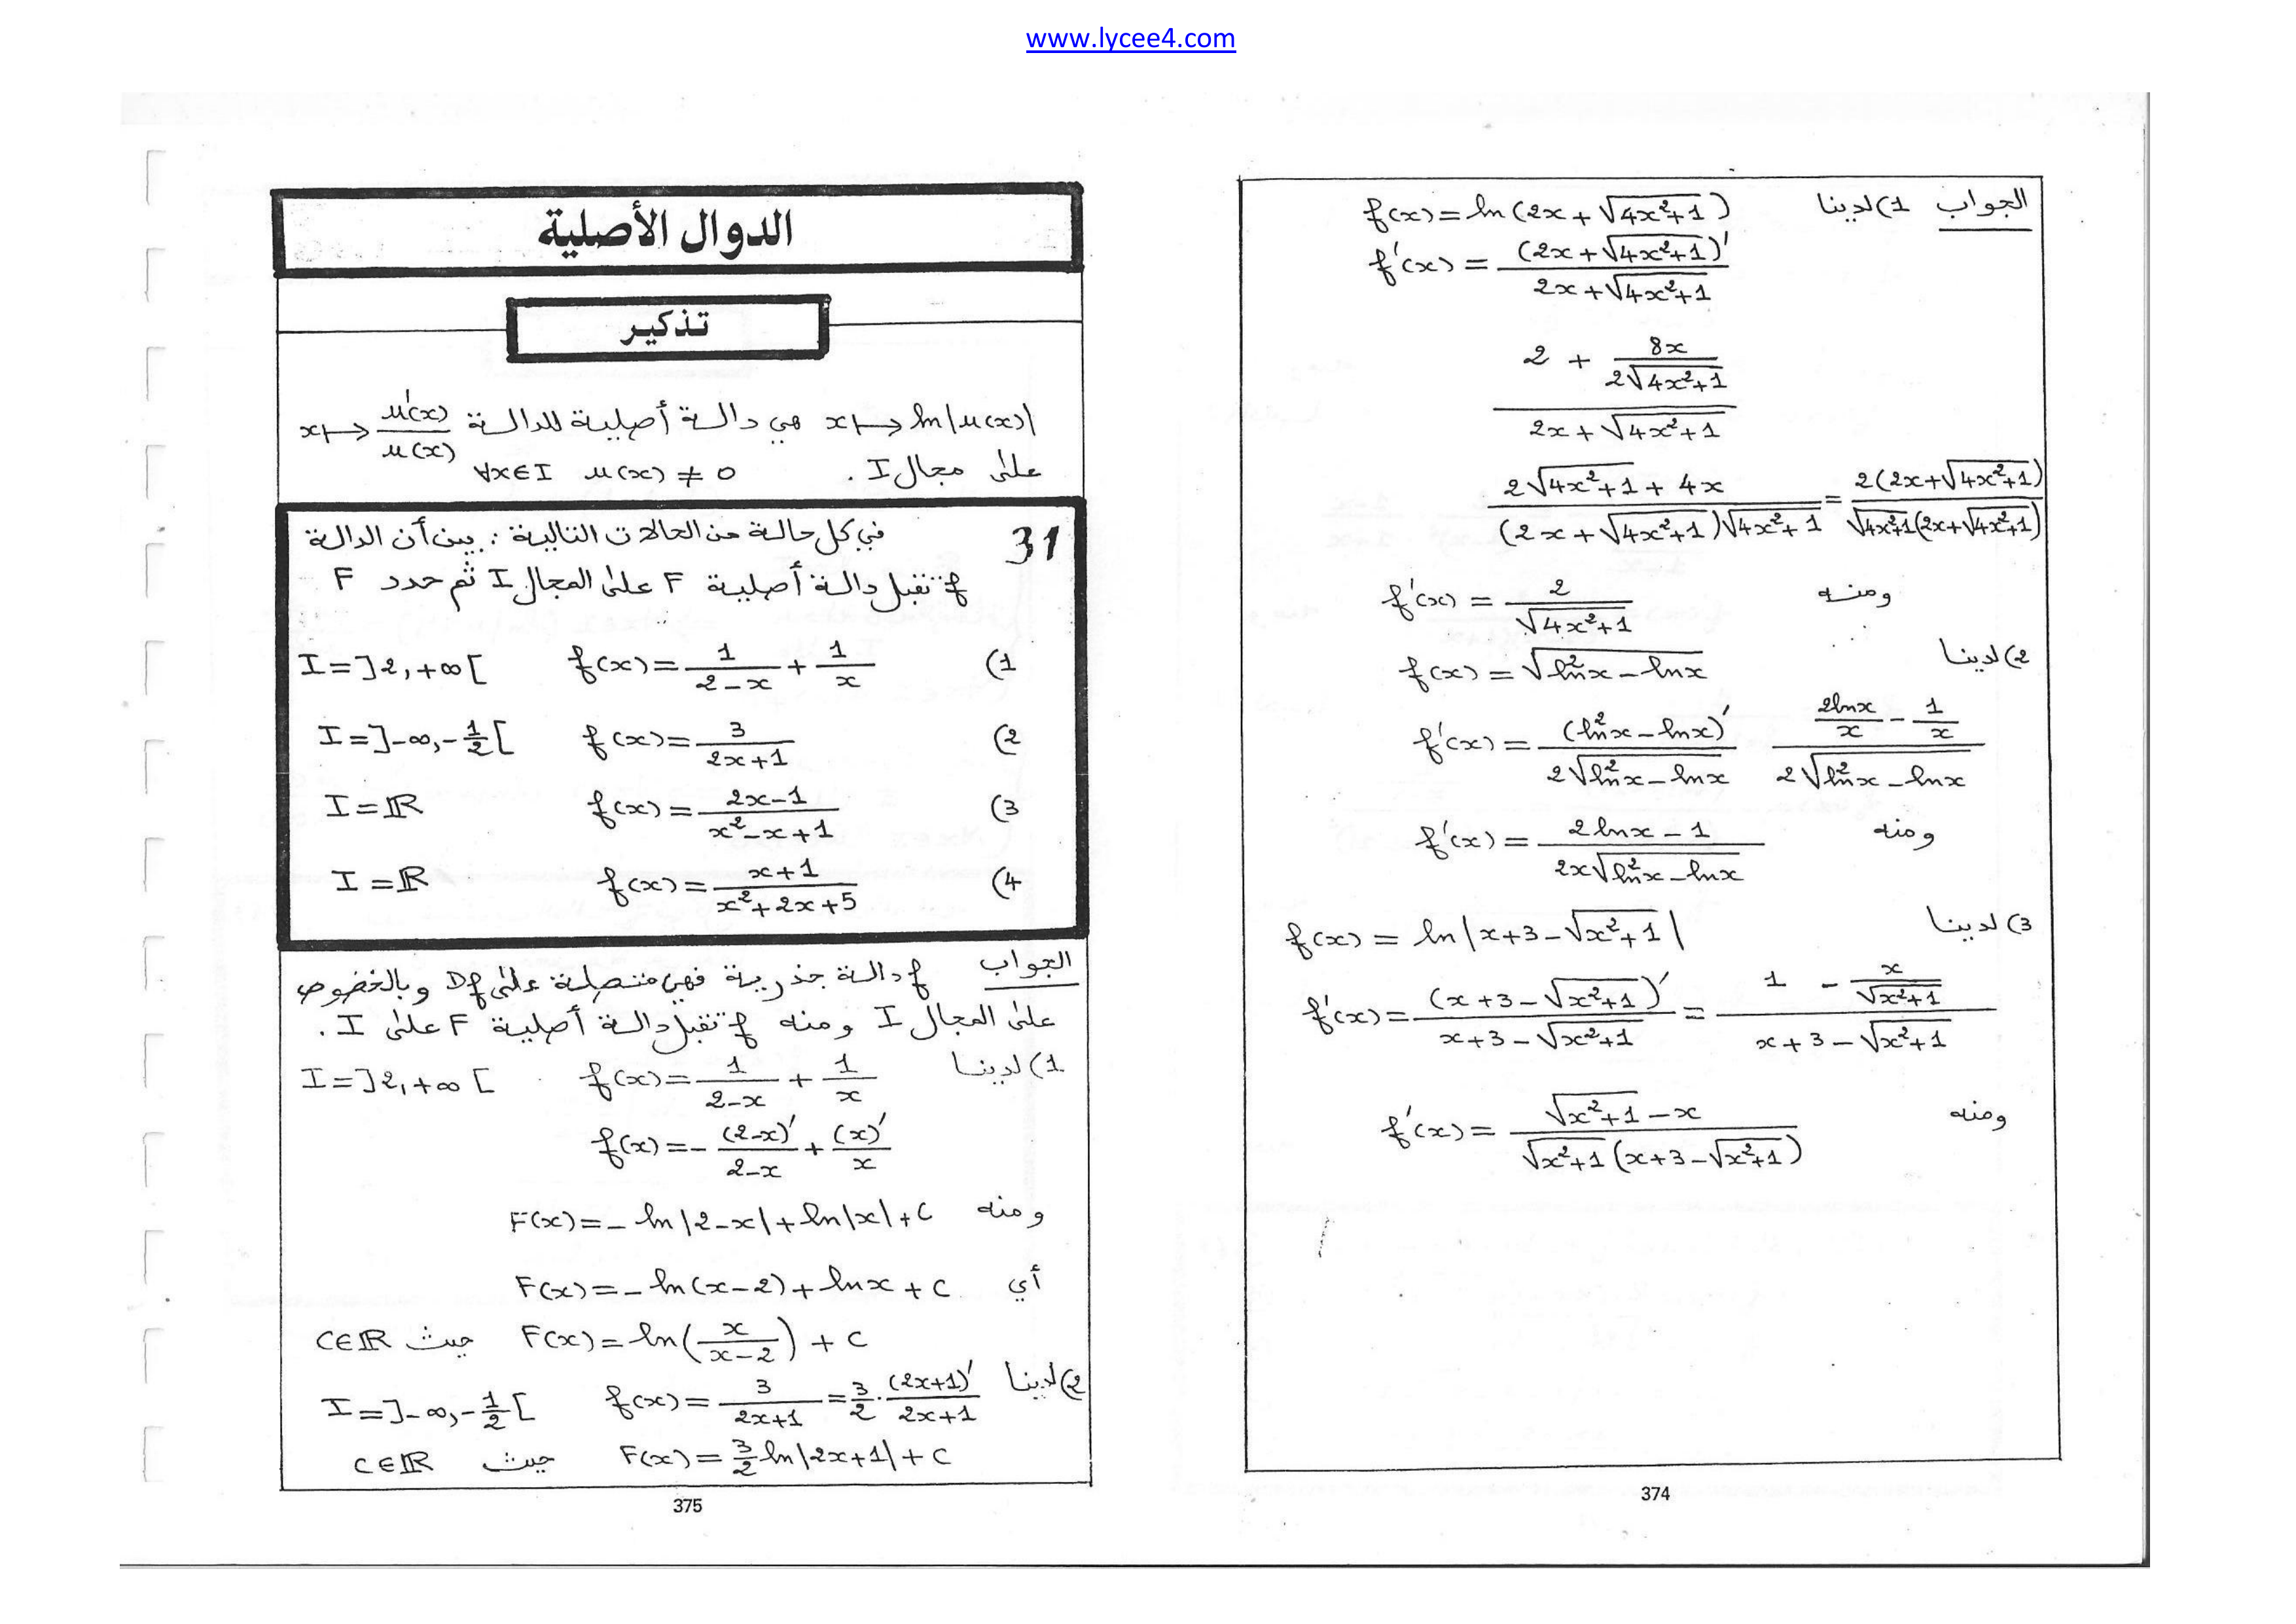 www.lycee4.com
الجواب 1) لدينا f(x) = ln(2x + √(4x²+1))
f'(x) = (2x + √(4x²+1))' / (2x + √(4x²+1))
(2 + 8x / (2√(4x²+1))) / (2x + √(4x²+1))
(2√(4x²+1) + 4x) / ((2x + √(4x²+1))√(4x²+1)) = 2(2x + √(4x²+1)) / (√(4x²+1)(2x + √(4x²+1)))
ومنه f'(x) = 2 / √(4x²+1)
2) لدينا f(x) = √(ln²x − lnx)
f'(x) = (ln²x − lnx)' / (2√(ln²x − lnx)) (2lnx/x − 1/x) / (2√(ln²x − lnx))
ومنه f'(x) = (2lnx − 1) / (2x√(ln²x − lnx))
3) لدينا f(x) = ln|x+3−√(x²+1)|
f'(x) = (x+3−√(x²+1))' / (x+3−√(x²+1)) = (1 − x/√(x²+1)) / (x+3−√(x²+1))
ومنه f'(x) = (√(x²+1) − x) / (√(x²+1)(x+3−√(x²+1)))
374
الدوال الأصلية
تذكير
x ↦ ln|u(x)| هي دالة أصلية للدالة x ↦ u'(x)/u(x)
على مجال I. ∀x∈I u(x) ≠ 0
31 في كل حالة من الحالات التالية : بين أن الدالة
f تقبل دالة أصلية F على المجال I ثم حدد F
1) f(x) = 1/(2−x) + 1/x I = ]2, +∞[
2) f(x) = 3/(2x+1) I = ]−∞, −1/2[
3) f(x) = (2x−1)/(x²−x+1) I = ℝ
4) f(x) = (x+1)/(x²+2x+5) I = ℝ
الجواب f دالة جذرية فهي متصلة على Df وبالخصوص
على المجال I ومنه f تقبل دالة أصلية F على I.
1) لدينا f(x) = 1/(2−x) + 1/x I = ]2, +∞[
f(x) = −(2−x)'/(2−x) + (x)'/x
ومنه F(x) = −ln|2−x| + ln|x| + C
أي F(x) = −ln(x−2) + lnx + C
F(x) = ln(x/(x−2)) + C حيث C∈ℝ
2) لدينا f(x) = 3/(2x+1) = 3/2 · (2x+1)'/(2x+1) I = ]−∞, −1/2[
F(x) = 3/2 ln|2x+1| + C حيث C∈ℝ
375